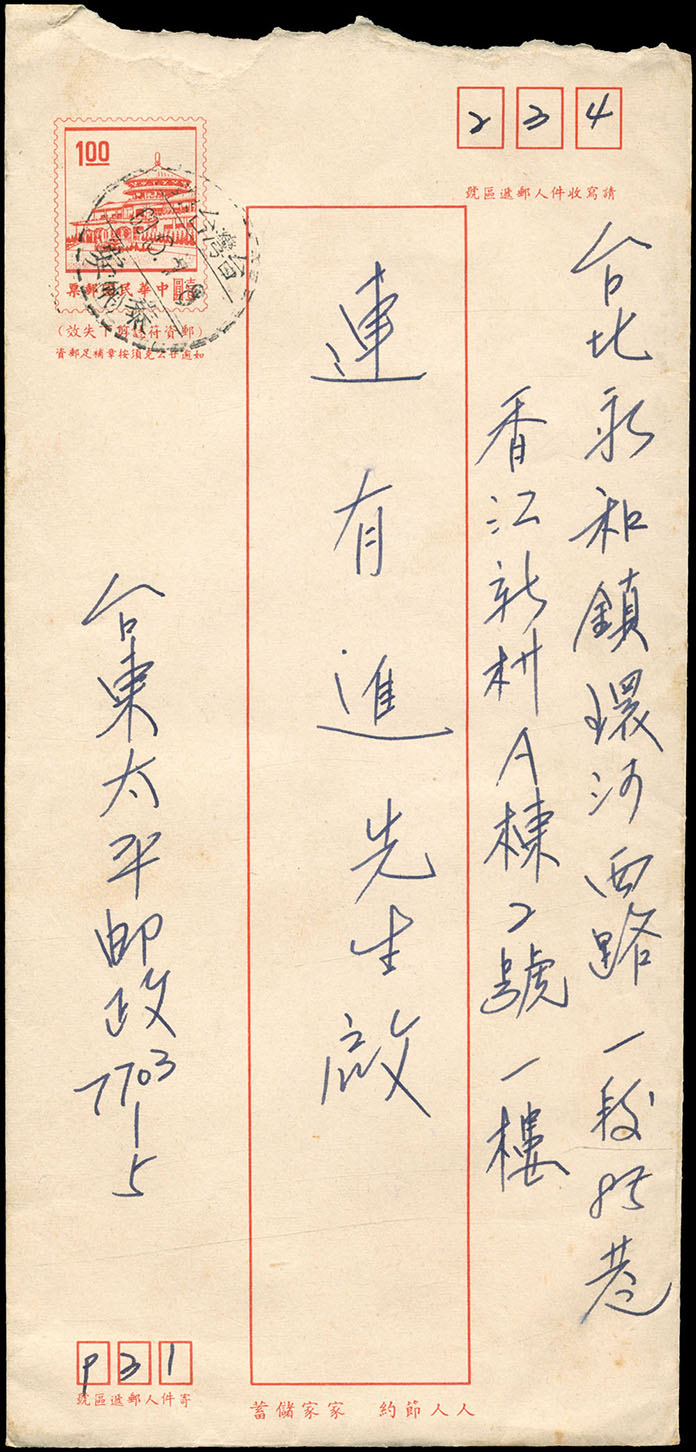 234
請寫收件人郵遞區號
台北永和鎮環河西路一段 巷
香江新村A棟2號一樓
連有進先生啟
1.00
中華民國郵票
(郵資符誌剪下失效)
如逾廿公克須按章補足郵資
台灣省
台東太平邮政
7703
1
5
931
寄件人郵遞區號
人人節約 家家儲蓄